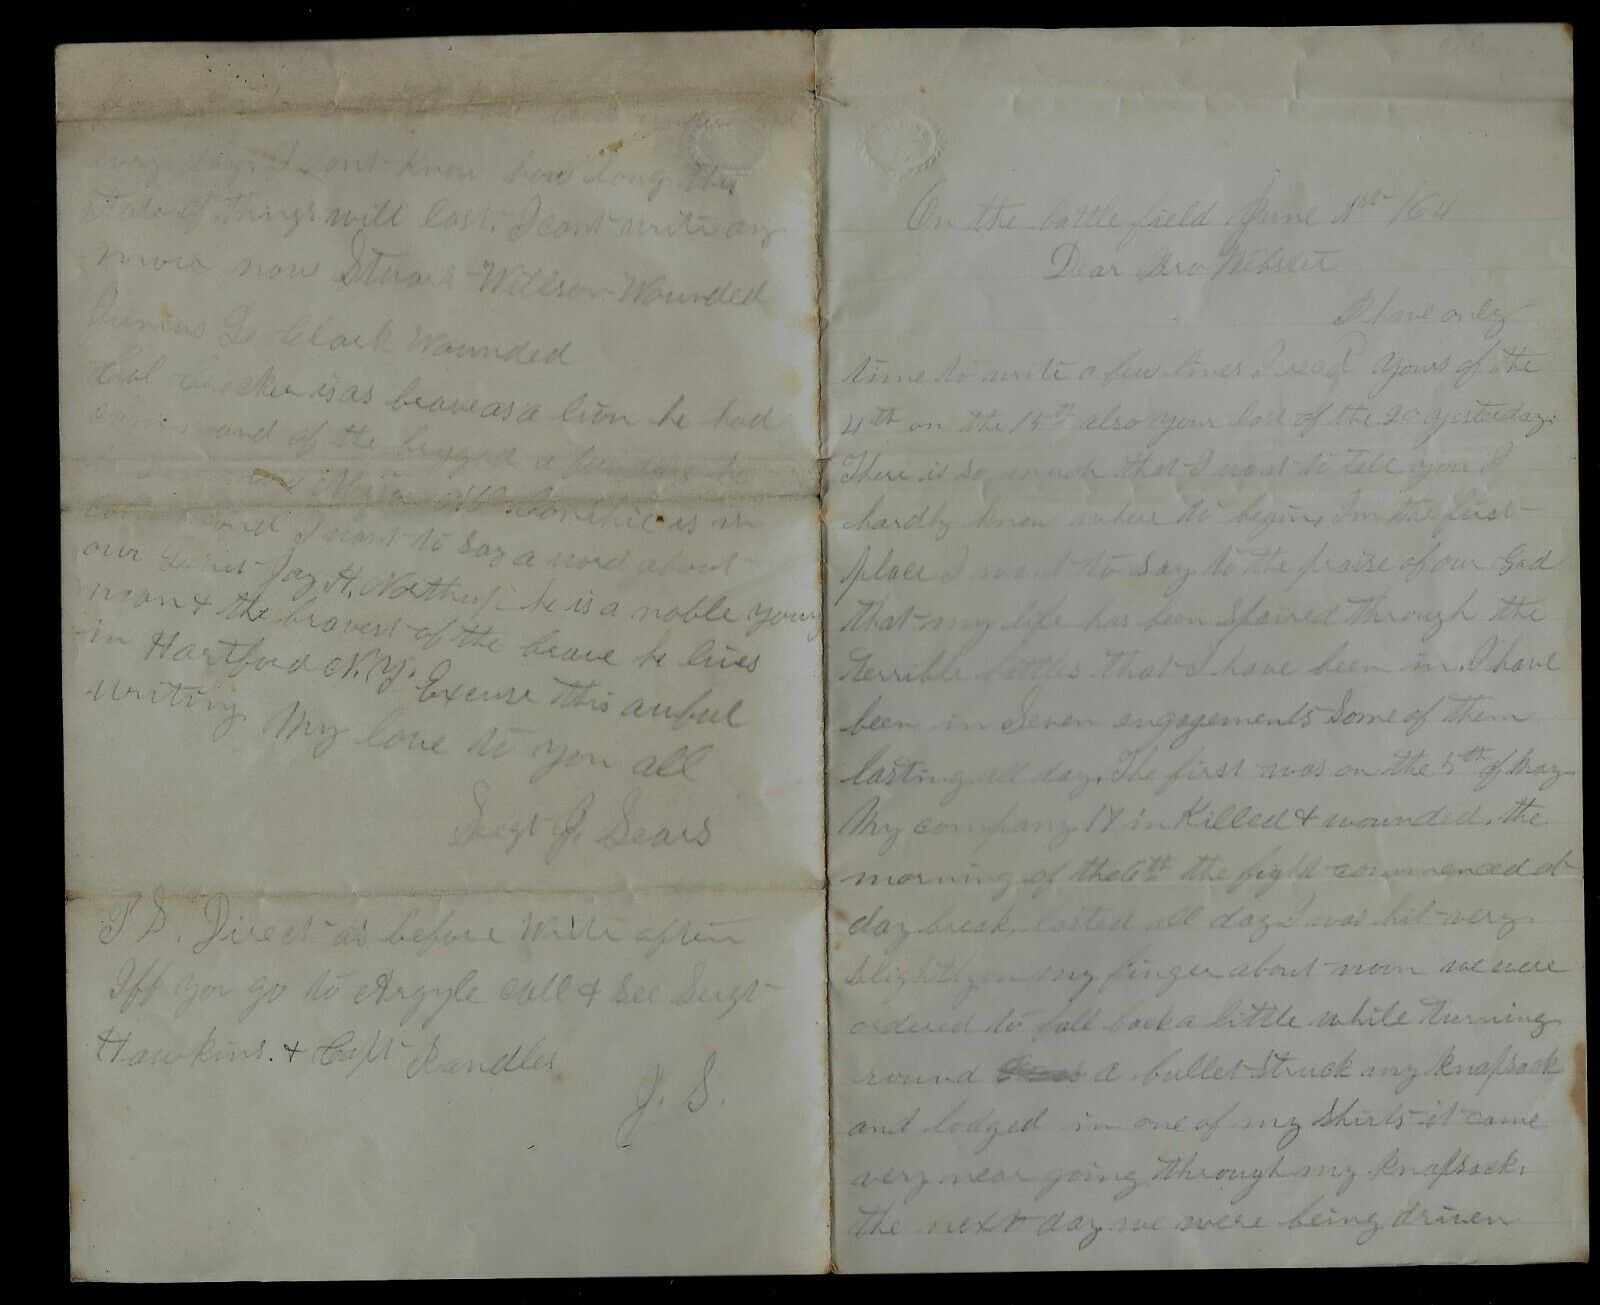 On the battle field June 1st /64
Dear Bro Webster
I have only
time to write a few lines I recd yours of the
4th on the 15th also your last of the 20 yesterday.
There is so much that I want to tell you I
hardly know where to begin, Im the first
place I want to say to the praise of our God
that my life has been spaired through the
terrible battles that I have been in. I have
been in Seven engagements Some of them
lasting all day. The first was on the 5th of May
My company 17 in Killed & wounded. the
morning of the 6th the fight commenced at
day break. lasted all day I was hit very
slightly on my finger about noon we were
ordered to fall back a little while turning
round a bullet struck my knapsack
and lodged in one of my shirts it came
very near going through my knapsack.
the next day we were being driven
have been under fire
every day. I dont know how long this
state of things will last. I cant write any
more now Stuart Willson Wounded
Junius D Clark Wounded
Col Crocker is as brave as a lion he had
command of the brygad a few days he
is in
command I want to say a word about
our Lieut Jay H. Northup he is a noble young
man & the bravest of the brave he lives
in Hartford N.Y. Excuse this awful
writing My love to you all
Sergt J. Sears
P S. Direct as before Write often
Iff you go to Argyle call & see Sergt
Hawkins. & Capt Randles
J. S.